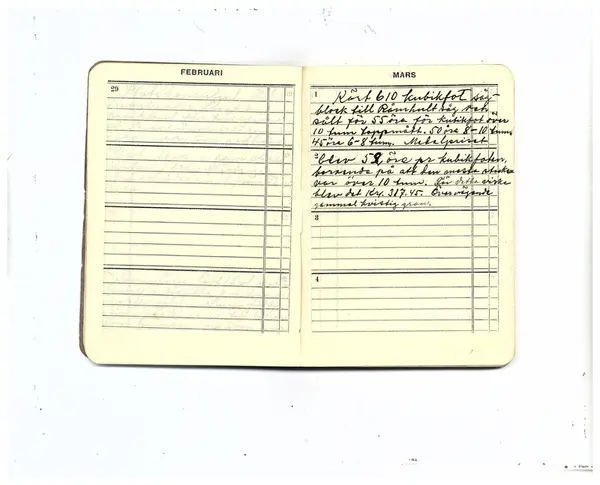 FEBRUARI
29
MARS
1 Kört 610 kubikfot såg-
block till Rämhult såg och
sålt för 55 öre för kubikfot över
10 tum toppmått. 50 öre 8-10 tum,
45 öre 6-8 tum. Medelpriset
2 blev 52 öre pr kubikfoten,
beroende på att den mesta
var över 10 tum. För detta virke
blev det Kr. 317.45. Övervägande
gammal kvistig gran.
3
4